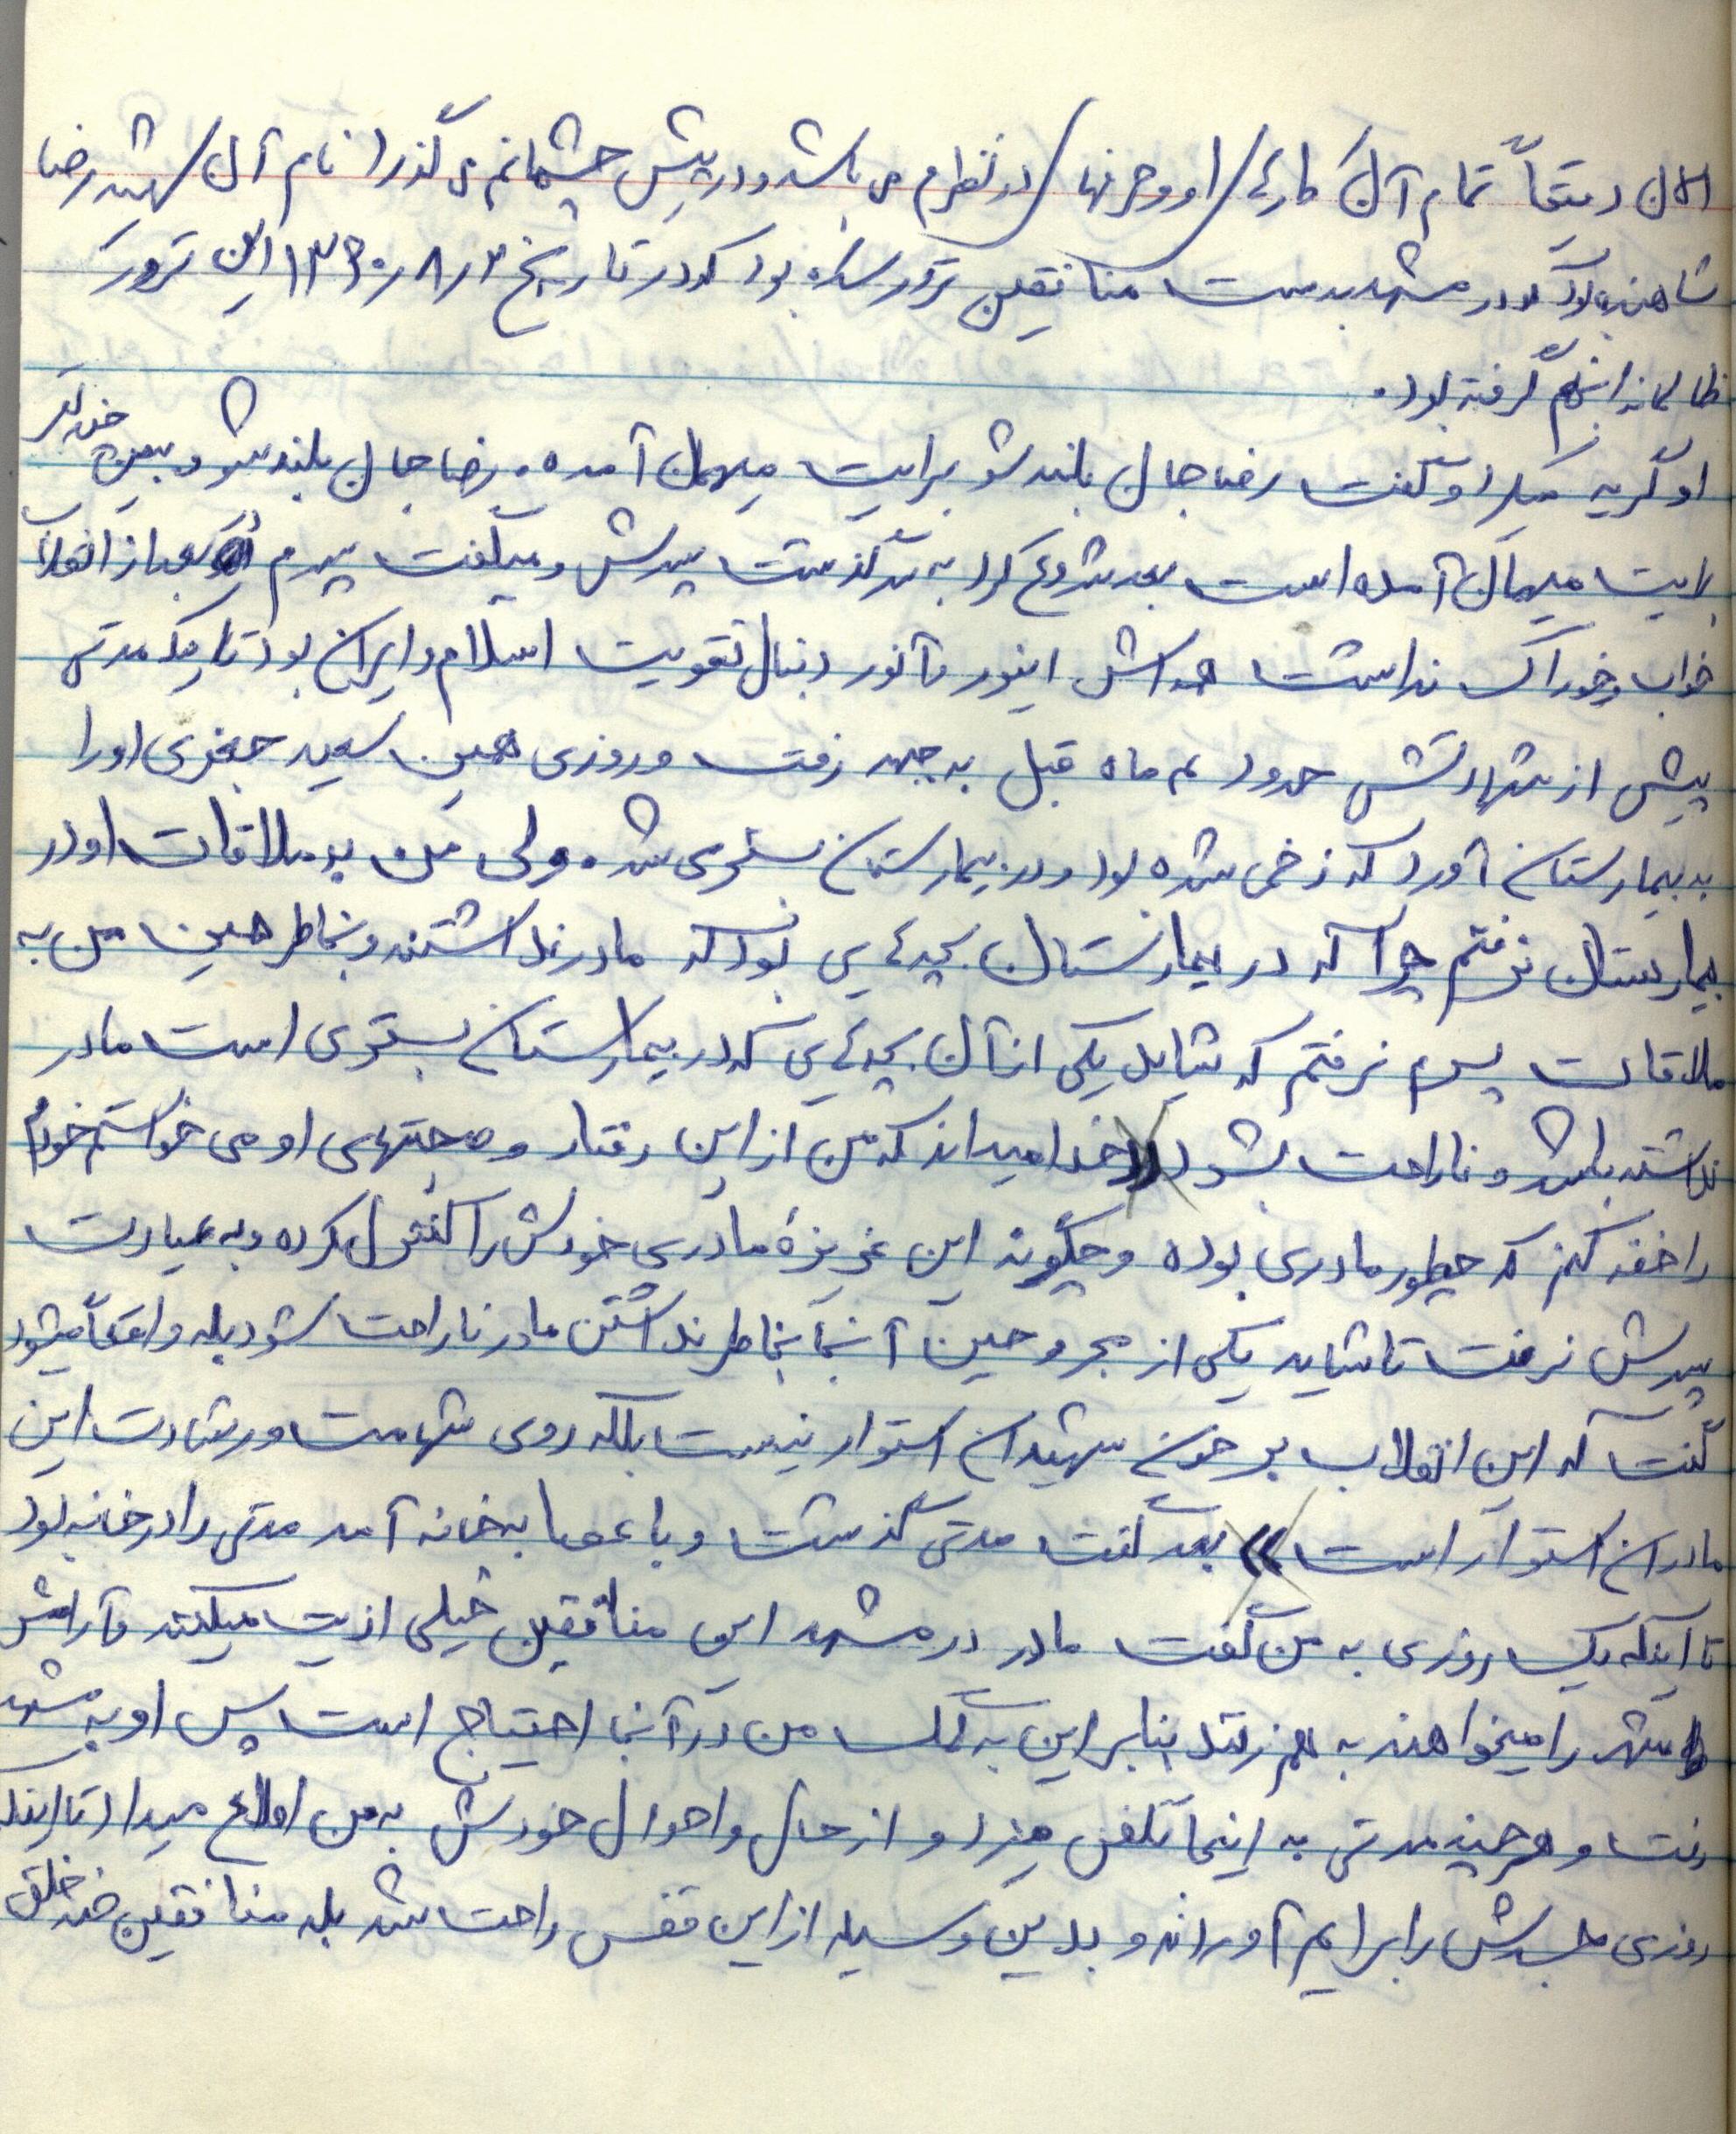 الان دقیقاً تمام آن کارهای او و حرفهای او در نظرم می باشد و در پیش چشمانم می گذرد نام آن شهید رضا
شاهنده بود که در مشهد بدست منافقین ترور شده بود که در تاریخ ۱۳۶۰/۸/۳ این ترور
ظالمانه انجام گرفته بود.
او گریه میکرد و گفت رضا جان بلند شو برایت میهمان آمده. رضا جان بلند شو و ببین
برایت میهمان آمده است بعد شروع کرد به سرگذشت پسرش و میگفت پسرم بعد از انقلاب
خواب و خوراک نداشت همه اش اینور و آنور دنبال تقویت اسلام و ایران بود تا یک مدتی
پیش از شهادتش حدود ۳ ماه قبل به جبهه رفت و روزی همین سعید جعفری او را
به بیمارستان آورد که زخمی شده بود و در بیمارستان بستری شد. ولی من به ملاقات او در
بیمارستان نرفتم چرا که در بیمارستان بچه هایی بود که مادر نداشتند و بخاطر همین من به
ملاقات پسرم نرفتم که شاید یکی از آن بچه هایی که در بیمارستان بستری است مادر
نداشته باشد و ناراحت بشود «خدا میداند که من از این رفتار و محبتهای او می خواستم خودم
را خفه کنم که چطور مادری بوده و چگونه این غریزهٔ مادری خودش را کنترل کرده و به عیادت
پسرش نرفت تا شاید یکی از مجروحین آنجا بخاطر نداشتن مادر ناراحت شود بله واقعاً میشود
گفت که این انقلاب بر خون شهیدان استوار نیست بلکه روی شهامت و رشادت این
مادران استوار است» بعد گفت مدتی گذشت و با عصا به خانه آمد مدتی را در خانه بود
تا اینکه یک روزی به من گفت مادر در مشهد این منافقین خیلی اذیت میکنند و آرامش
شهر را میخواهند به هم زنند بنابراین به کمک من در آنجا احتیاج است پس او به مشهد
رفت و هر چند مدتی به اینجا تلفن میزد و از حال و احوال خودش به من اطلاع میداد تا اینکه
روزی جسدش را برایم آوردند و بدین وسیله از این قفس راحت شد بله منافقین ضد خلق